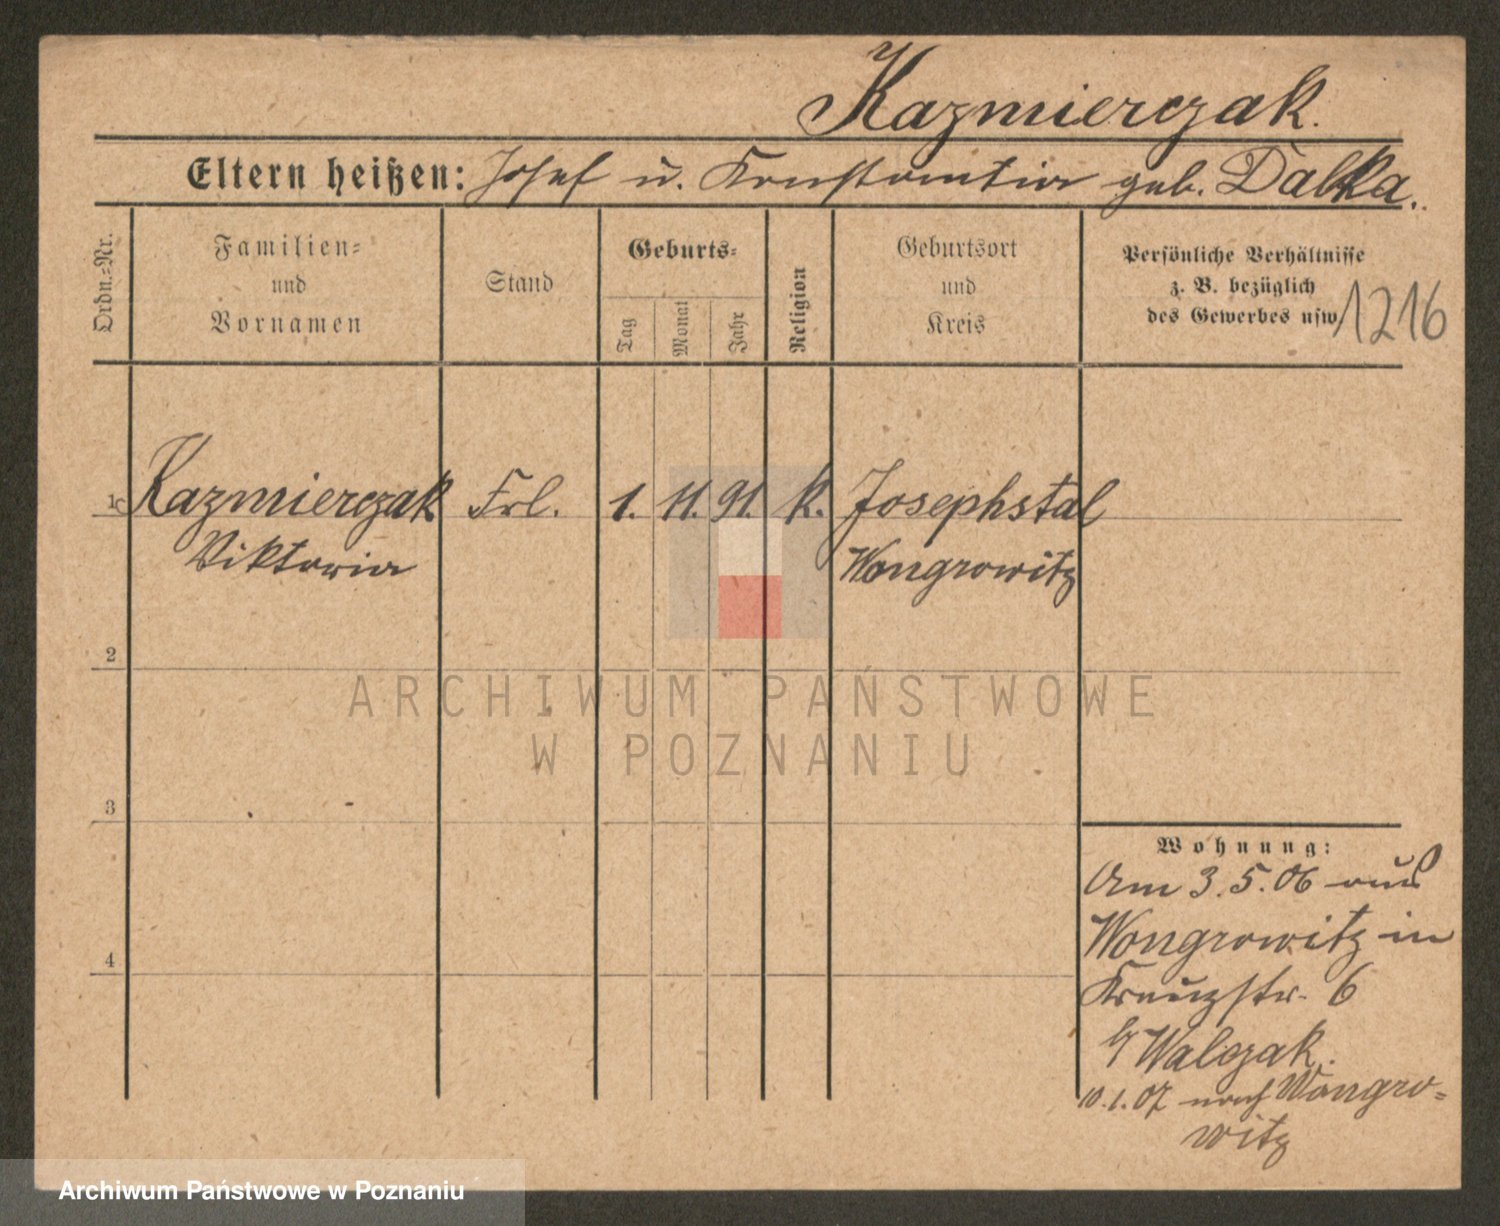 Kazmierczak.
Eltern heißen: Josef u. Konstantia geb. Dalka.
Ordn.-Nr.
Familien-
und
Vornamen
Stand
Geburts-
Tag
Monat
Jahr
Religion
Geburtsort
und
Kreis
Persönliche Verhältnisse
z. B. bezüglich
des Gewerbes usw
1216
1 Kazmierczak Frl. 1. 11. 91. k. Josephstal
Viktoria Wongrowitz
2
ARCHIWUM PAŃSTWOWE
W POZNANIU
3
Wohnung:
Am 3.5.06 aus
Wongrowitz in
Kreuzstr. 6
b/ Walczak.
4
10.1.07 nach Wongro-
witz
Archiwum Państwowe w Poznaniu